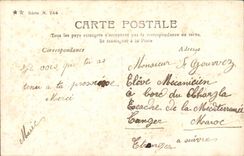 Série N. 744
CARTE POSTALE
Tous les pays étrangers n'acceptent pas la correspondance au verso.
Se renseigner à la Poste
Correspondance
Adresse
Je vois que tu as
tenu a ta promesse
Merci
Marie
Monsieur Y Gouvorez
Élève Mécanicien
à bord du
Escadre de la Méditerranée
Tanger Maroc
Etranger
à suivre